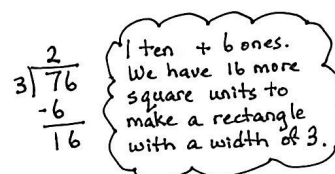 2
3 76
-6
16
1 ten + 6 ones.
We have 16 more
square units to
make a rectangle
with a width of 3.